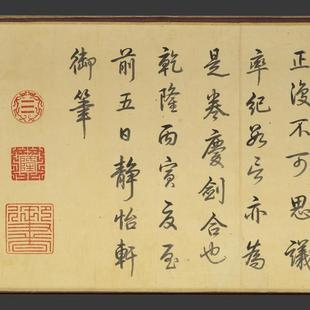 正復不可思議
率紀數言亦為
是卷慶劍合也
乾隆丙寅夏至
前五日靜怡軒
御筆